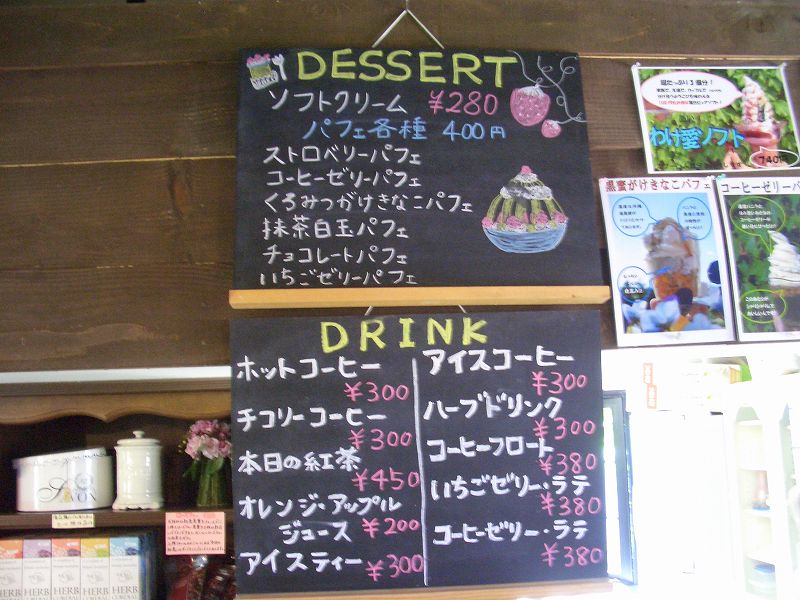 DESSERT
ソフトクリーム ¥280
パフェ各種 400円
ストロベリーパフェ
コーヒーゼリーパフェ
くろみつがけきなこパフェ
抹茶白玉パフェ
チョコレートパフェ
いちごゼリーパフェ
DRINK
ホットコーヒー
¥300
チコリーコーヒー
¥300
本日の紅茶
¥450
オレンジ・アップル
ジュース ¥200
アイスティー ¥300
アイスコーヒー
¥300
ハーブドリンク
¥300
コーヒーフロート
¥380
いちごゼリー・ラテ
¥380
コーヒーゼリー・ラテ
¥380
わけ愛ソフト
740
黒蜜がけきなこパフェ
コーヒーゼリーパ
SAVON
HERB
HERB
HERB
HERB
HERB